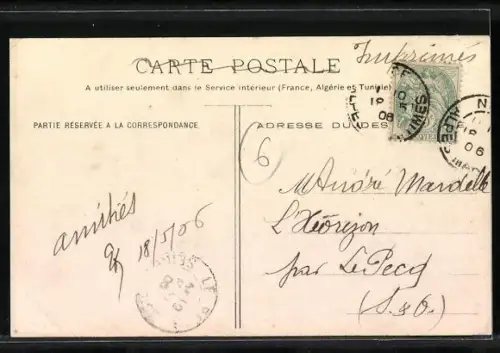 Imprimés
CARTE POSTALE
A utiliser seulement dans le Service intérieur (France, Algérie et Tunisie)
PARTIE RÉSERVÉE A LA CORRESPONDANCE
ADRESSE DU DES
6
amitiés
18/5/06
M André
L'Horizon
par Le Pecq
(S & O)